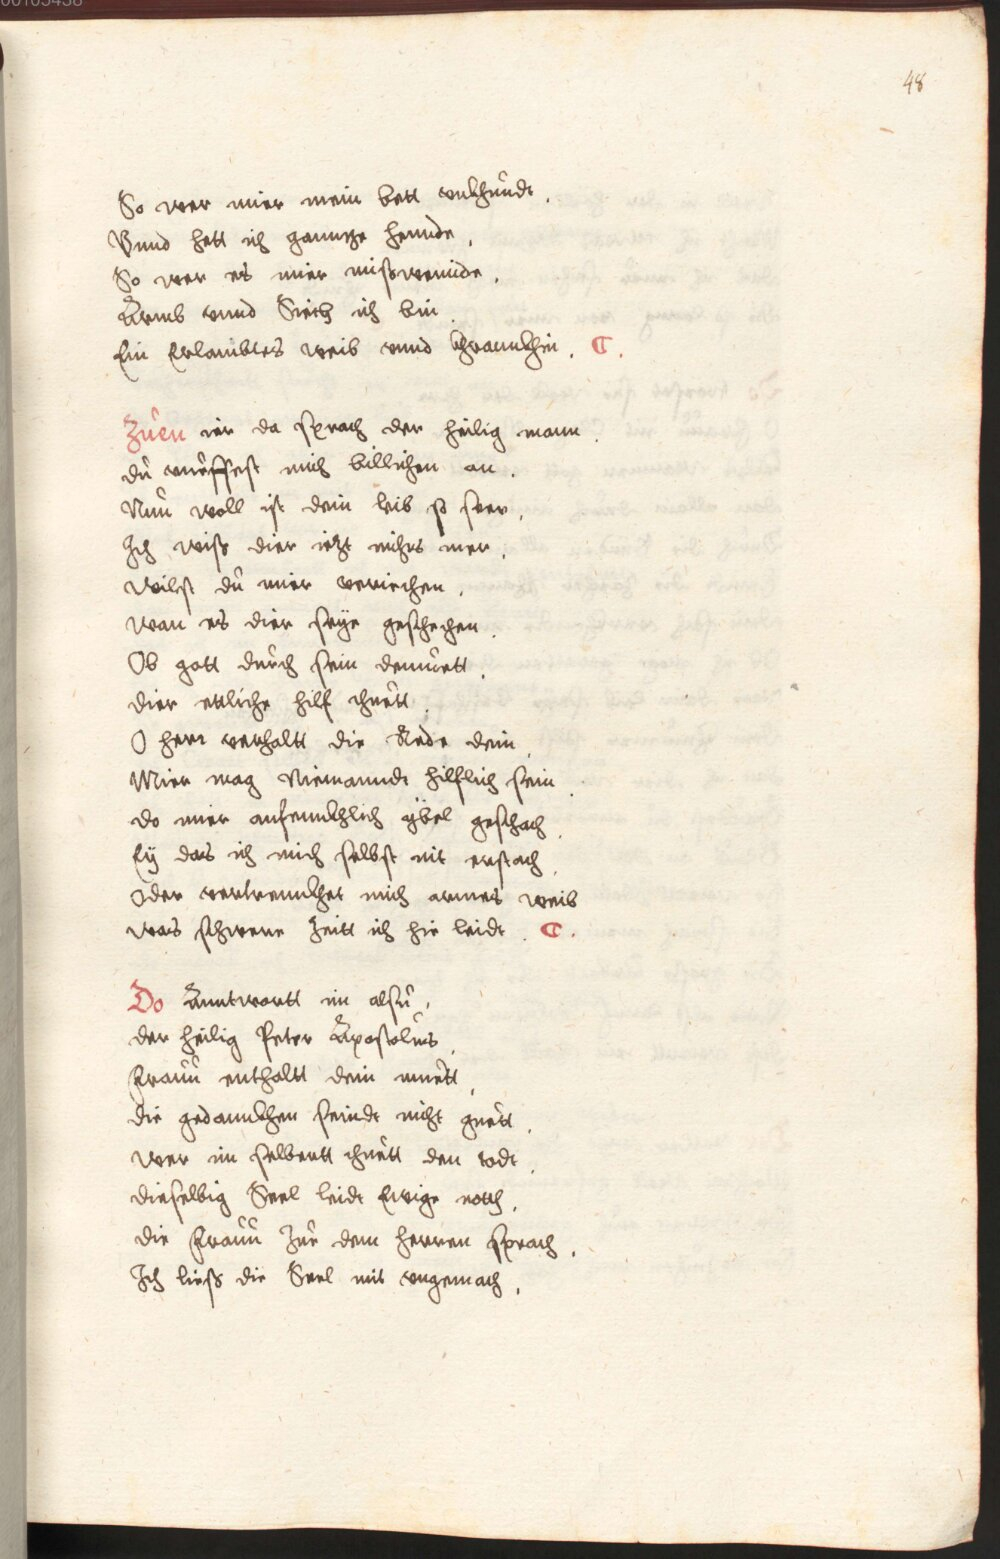 00103438
48
So wer mier mein bett vnkhundt.
Vnnd hett ich ganntze hennde,
So wer es mier mißwennde.
Armb vnnd Siech ich bin
Ein Erlambtes weib vnnd khrannkhin. C.
Zuen ier da sprach der heilig mann.
du rueffest mich billichen an.
Nun woll ist dein leib so seer,
Ich wiß dier ietzt nichts mer.
Wilst du mier veriechen,
Wan es dier seye geschechen.
Ob gott durch sein demuett.
dier ettliche hilf thuett.
O herr verhaltt die Rede dein,
Mier mag Niemanndt hilflich sein.
do mier anfenkhlich ybel geschach.
Ey das ich mich selbst nit erstach,
Oder vertrennkhet mich armes weib
was schwere Zeitt ich hie leidt. C.
Do Anntwortt im alsu,
der heilig Peter Apostolus,
Frauu enthaltt dein muett,
die gedannkhen seindt nicht guett.
Wer im selbertt thuett den todt,
dieselbig Seel leidt Ewige notth.
die Frauu Zue dem herren sprach,
Ich ließ die Seel mit vngemach,